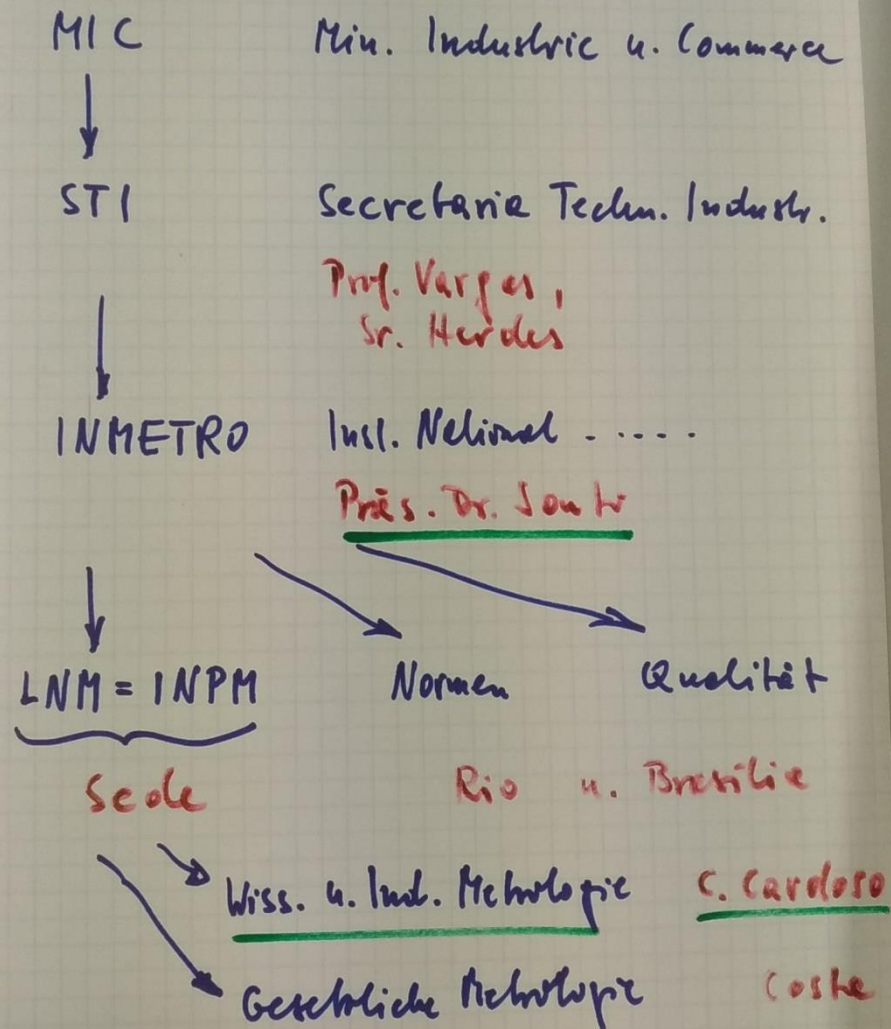 MIC Min. Industrie u. Commerce
STI Secretaria Techn. Industr.
Prof. Vargas,
Sr. Herdes
INMETRO Inst. National .....
Präs. Dr.
LNM = INPM Normen Qualität
Sede Rio u. Brasilia
Wiss. u. Ind. Metrologie C. Cardoso
Gesetzliche Metrologie Costa